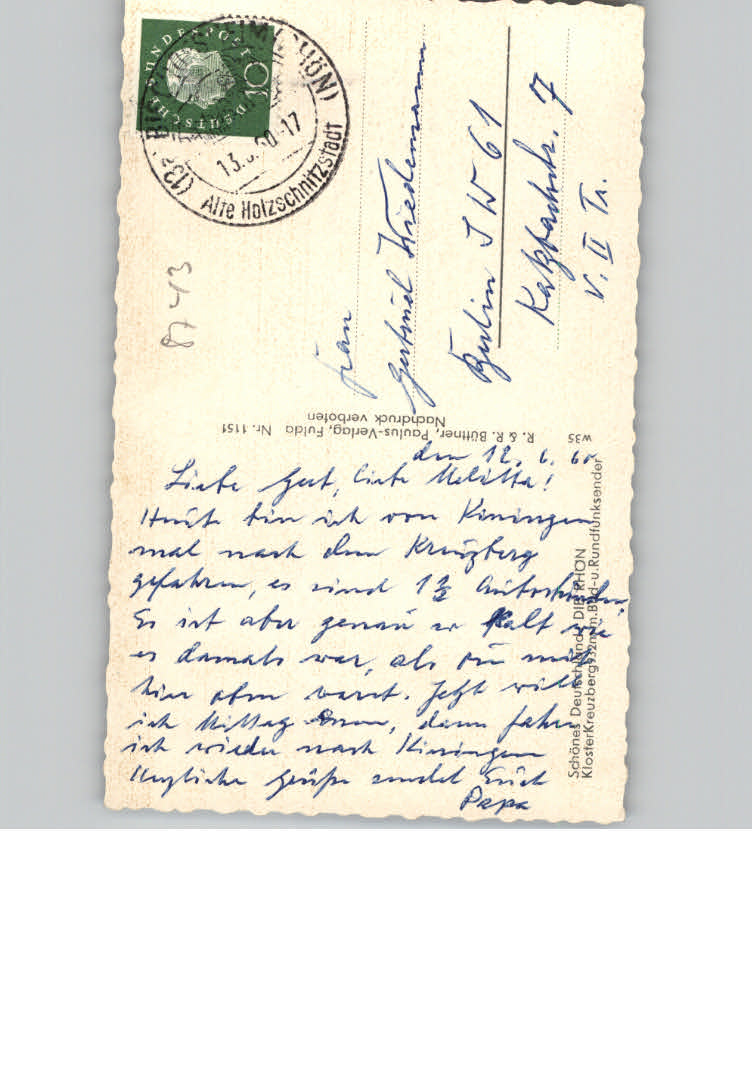 DEUTSCHE BUNDESPOST
10
(RHÖN)
13. 60-17
Alte Holzschnitzstadt
8743
Frau
Gertrud Wiedemann
Berlin SW 61
Katzbachstr. 7
V. II Tr.
W35 R. & R. Büttner, Paulus-Verlag, Fulda Nr. 1151
Nachdruck verboten
den 12. 6. 60
Liebe Gert, liebe Melitta!
Heute bin ich von Kissingen
mal nach dem Kreuzberg
gefahren, es sind 1½ Autostunden.
Es ist aber genau so kalt wie
es damals war, als Du mit
hier oben warst. Jetzt will
ich Mittag essen, dann fahre
ich wieder nach Kissingen
Herzliche Grüße sendet Euch
Papa
Schönes Deutschland: DIE RHÖN
Kloster Kreuzberg 932m m. Bild-u. Rundfunksender